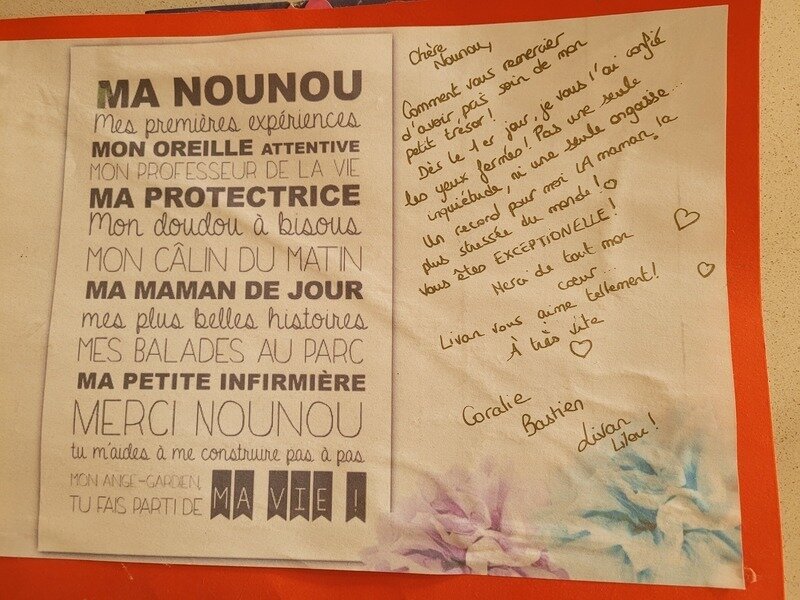 MA NOUNOU
Mes premières expériences
MON OREILLE ATTENTIVE
MON PROFESSEUR DE LA VIE
MA PROTECTRICE
Mon doudou à bisous
MON CÂLIN DU MATIN
MA MAMAN DE JOUR
mes plus belles histoires
MES BALADES AU PARC
MA PETITE INFIRMIÈRE
MERCI NOUNOU
tu m'aides à me construire pas à pas
MON ANGE-GARDIEN,
TU FAIS PARTI DE MA VIE !
Chère
Nounou,
Comment vous remercier
d'avoir pris soin de mon
petit trésor !
Dès le 1er jour, je vous l'ai confié
les yeux fermés ! Pas une seule
inquiétude, ni une seule angoisse...
Un record pour moi LA maman la
plus stressée du monde !
Vous êtes EXCEPTIONELLE !
Merci de tout mon
cœur...
Livan vous aime tellement !
À très vite
Coralie
Bastien
Livan
Lilou !